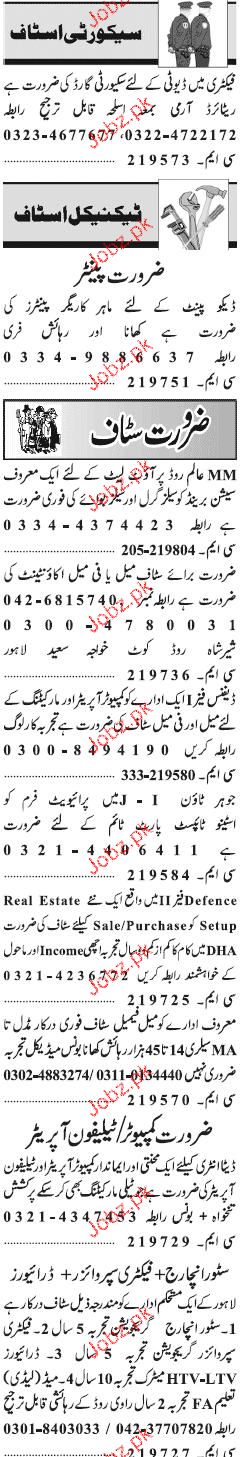 سیکورٹی اسٹاف
فیکٹری میں ڈیوٹی کے لئے سکیورٹی گارڈ کی ضرورت ہے
ریٹائرڈ آرمی بمعہ اسلحہ قابل ترجیح رابطہ
0323-4677677, 0322-4722172
سی ایم۔ 219573
ٹیکنیکل اسٹاف
ضرورت پینٹر
ڈیکو پینٹ کے لئے ماہر کاریگر پینٹرز کی
ضرورت ہے کھانا اور رہائش فری
رابطہ 0334-9886637
سی ایم۔ 219751
ضرورت سٹاف
MM عالم روڈ پر آؤٹ لیٹ کے لئے ایک معروف
فیشن برینڈ کو سیلز گرل اور بوائے کی فوری ضرورت
ہے رابطہ 0334-4374423
سی ایم۔ 219804-205
ضرورت برائے سٹاف میل یا فی میل اکاؤنٹینٹ کی
ضرورت ہے رابطہ نمبر 042-6815740
0300-4780031
شیرشاہ روڈ کوٹ خواجہ سعید لاہور
سی ایم۔ 219736
ڈیفنس فیز I ایک ادارے کو کمپیوٹر آپریٹر اور مارکیٹنگ کے
لئے میل اور فی میل سٹاف کی ضرورت ہے تجربہ کار لوگ
رابطہ کریں 0300-8494190
سی ایم۔ 219580-333
جوہر ٹاؤن J-I میں پرائیویٹ فرم کو
اسٹینو ٹائپسٹ پارٹ ٹائم کے لئے ضرورت
ہے 0321-4406411
سی ایم۔ 219584
Defence فیز II میں واقع ایک نئے Real Estate
Setup کو Sale/Purchase کیلئے سٹاف کی ضرورت
DHA میں کام کا کم از کم سال تجربہ اچھی Income اور ماحول
کے خواہشمند رابطہ کریں 0321-4236772
سی ایم۔ 219725
معروف ادارے کو میل فیمیل سٹاف فوری درکار مڈل تا
MA سیلری 14 تا 45 ہزار رہائش کھانا بونس میڈیکل تجربہ
ضروری نہیں 0311-0134440 / 0302-4883274
سی ایم۔ 219570
ضرورت کمپیوٹر/ٹیلیفون آپریٹر
ڈیٹا انٹری کیلئے ایک محنتی اور ایماندار کمپیوٹر آپریٹر اور ٹیلیفون
آپریٹر کی ضرورت ہے جو ٹیلی مارکیٹنگ بھی کر سکے پرکشش
تنخواہ + بونس رابطہ 0321-4347453
سی ایم۔ 219729
سٹور انچارج + فیکٹری سپروائزر + ڈرائیورز
لاہور کے ایک مستحکم ادارے کو مندرجہ ذیل سٹاف درکار ہے
1۔ سٹور انچارج گریجویشن تجربہ 5 سال 2۔ فیکٹری
سپروائزر گریجویشن تجربہ 5 سال 3۔ ڈرائیورز
HTV-LTV میٹرک تجربہ 10 سال 4۔ میڈ (لیڈی)
تعلیم FA تجربہ 2 سال راوی روڈ کے رہائشی قابل ترجیح
رابطہ 042-37707820 / 0301-8403033
سی ایم۔ 219727
Jobz.pk